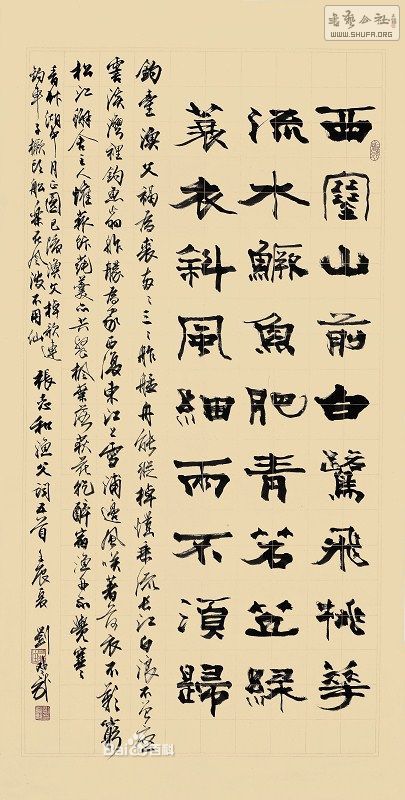 書藝公社
WWW.SHUFA.ORG
西塞山前白鷺飛桃華
流水鱖魚肥青若笠緑
蓑衣斜風細雨不須歸
釣臺漁父褐為裘兩〻三〻舴艋舟能縱棹慣乘流長江白浪不曾憂
霅溪灣裡釣魚翁舴艋為家西復東江上雪浦邊風咲著荷衣不歎窮
松江蟹舍主人歡菰飯蓴羹亦共飡楓葉落荻花乾醉宿漁舟不覺寒〻
青草湖中月正圓巴陵漁父棹歌連
釣車子橛頭船樂在風波不用仙
張志和漁父詞五首 壬辰夏 劉
Bai度百科